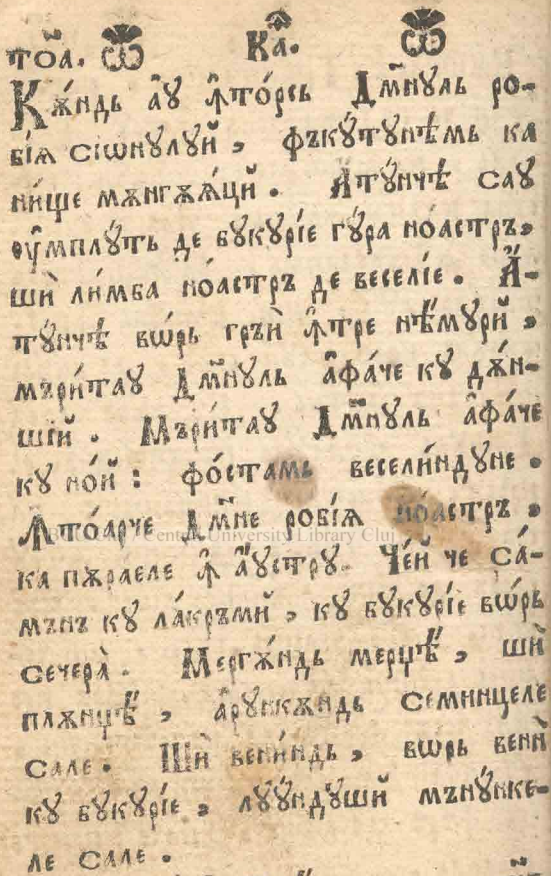 то́а. Ѿ Ка҃. Ѿ
Кѫ́ндь а҆у꙼ ꙟ҆то́рсь Дм҃нꙋль ро-
бі́ѧ сі́ѡнꙋлꙋй , фъкꙋ́тꙋнѣмь ка
ни́ще мѫнгѫѧ́цй . Атꙋнчѣ саꙋ
оу҆мплꙋ́ть де бꙋкꙋрі́е гꙋ́ра но́астръ,
шѝ ли́мба но́астръ де веселі́е . А҆-
тꙋнчѣ вѡ́рь гръѝ ꙟ҆тре нѣ́мꙋрй ,
мъри́таꙋ Дм҃нꙋль а҆фа́че кꙋ дѫ́н-
шій . Мъри́таꙋ Дм҃нꙋль а҆фа́че
кꙋ но́й : фо́стамь весели́ндꙋне .
Ꙟто́арче Дм҃не робі́ѧ но́астръ ,
BCU Cluj / Central University Library Cluj
ка пѫраеле ꙟ҆ а҆́ꙋстрꙋ. Че́й че са́-
мънъ кꙋ ла́кръмй , кꙋ бꙋкꙋрі́е вѡ́рь
сечера̀ . Мергѫ́ндь мерџѣ̋ , шѝ
плѫнџѣ̋ , а҆рꙋнкѫ́ндь семинцеле
сале . Шѝ вени́ндь , вѡрь венѝ
кꙋ бꙋкꙋрі́е , лꙋꙋ́ндꙋшй мънꙋ́нке-
ле сале .